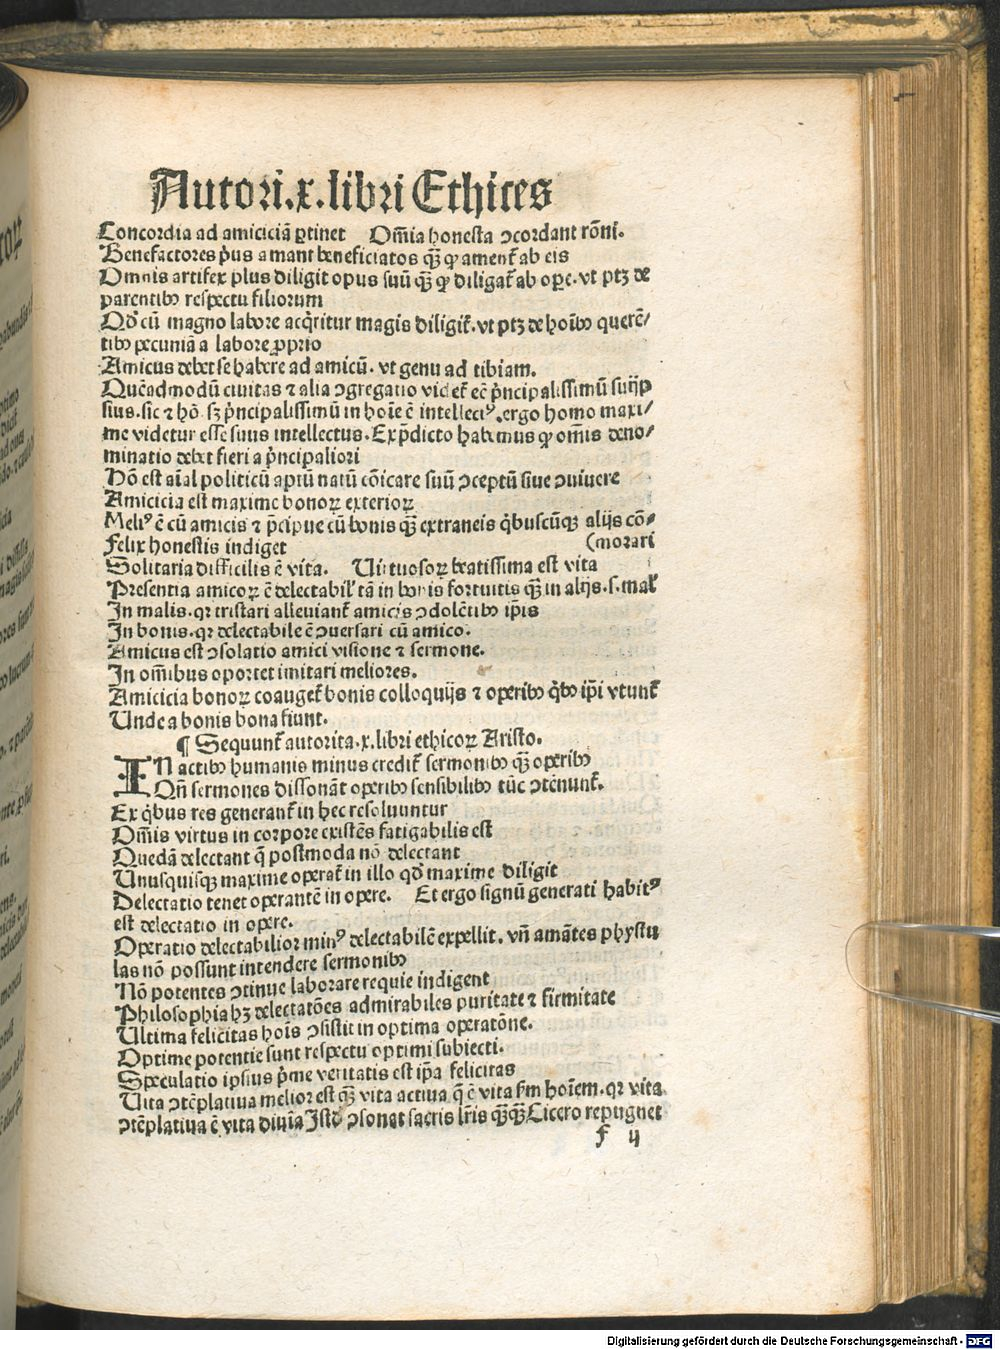 Autori.x.libri Ethices
Concordia ad amiciciā ꝑtinet Om̄ia honesta ꝯcordant rōni.
Benefactores pͥus amant beneficiatos qꝫ̄ ꝙ amentᷣ ab eis
Omnis artifex plus diligit opus suū qꝫ̄ ꝙ diligatᷣ ab oꝑe. vt ptꝫ de
parentibꝰ respectu filiorum
Qd̓ cū magno labore acqͥritur magis diligitᷣ. vt ptꝫ de hoībꝰ querē⸗
tibꝰ pecuniā a labore ꝓprio
Amicus debet se habere ad amicū. vt genu ad tibiam.
Quēadmodū ciuitas ⁊ alia ꝯgregatio videtᷣ eē pͥncipalissimū suijp
sius. sic ⁊ hō. sꝫ pͥncipalissimū in hoīe ē intellectꝰ. ergo homo maxi⸗
me videtur esse suus intellectus. Ex p̄dicto habemus ꝙ om̄is deno⸗
minatio debet fieri a pͥncipaliori
Hō est aīal politicū aptū natū cōicare suū ꝯceptū siue ꝯuiuere
Amicicia est maxime bonoꝝ exterioꝝ
Meliꝰ ē cū amicis ⁊ p̄cipue cū bonis qꝫ̄ extraneis qͥbuscūqꝫ alijs cō⸗
Felix honestis indiget (morari
Solitaria difficilis ē vita. Uirtuosoꝝ beatissima est vita
Presentia amicoꝝ ē delectabil̓ tā in bonis fortuitis qꝫ̄ in alijs. s. mal̓
In malis. qꝛ tristari alleuiantᷣ amicis ꝯdolētibꝰ ip̄is
In bonis. qꝛ delectabile ē ꝯuersari cū amico.
Amicus est ꝯsolatio amici visione ⁊ sermone.
In om̄ibus oportet imitari meliores.
Amicicia bonoꝝ coaugetᷣ bonis colloquijs ⁊ operibꝰ qͥbꝰ ip̄i vtuntᷣ
Unde a bonis bona fiunt.
¶ Sequuntᷣ autorita. x. libri ethicoꝝ Aristo.
IN actibꝰ humanis minus creditᷣ sermonibꝰ qꝫ̄ operibꝰ
Qn̄ sermones dissonāt operibꝰ sensibilibꝰ tūc ꝯtēnuntᷣ.
Ex qͥbus res generantᷣ in hec resoluuntur
Om̄is virtus in corpore existēs fatigabilis est
Quedā delectant q̄ postmoda nō delectant
Unusquisqꝫ maxime operatᷣ in illo qd̓ maxime diligit
Delectatio tenet operantē in opere. Et ergo signū generati habitꝰ
est delectatio in opere.
Operatio delectabilior minꝰ delectabilē expellit. vn̄ amātes phystu
las nō possunt intendere sermonibꝰ
Nō potentes ꝯtinue laborare requie indigent
Philosophia hꝫ delectatōes admirabiles puritate ⁊ firmitate
Ultima felicitas hoīs ꝯsistit in optima operatōne.
Optime potentie sunt respectu optimi subiecti.
Speculatio ipsius pͥme veritatis est ip̄a felicitas
Uita ꝯtēplatiua melior est qꝫ̄ vita actiua q̄ ē vita ẜm hoīem. qꝛ vita
ꝯtēplatiua ē vita diuīa Istd̓ ꝯsonat sacris lr̄is qꝫ̄qꝫ̄ Cicero repugnet
f ij
Digitalisierung gefördert durch die Deutsche Forschungsgemeinschaft - DFG